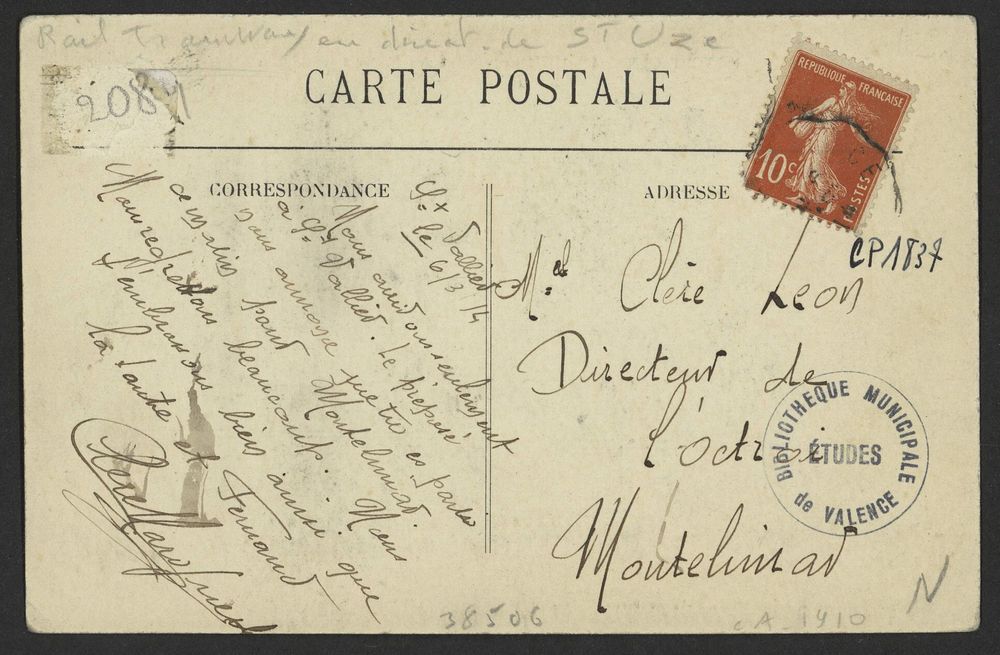 Rail Tramway en direct. de ST Uze
2081
CARTE POSTALE
REPUBLIQUE FRANÇAISE
10c
POSTES
CORRESPONDANCE
ADRESSE
CP1837
St Vallier
le 6/3/14
Nous avons seulement
à St Vallier. Le préposé
nous annonce que tu es partie
ce matin pour Montelimar. Nous
Nous regrettons beaucoup.
t'embrassons bien ainsi que
la tante et Fernand
Mr Clère Leon
Directeur de
l'octroi
Montelimar
BIBLIOTHEQUE MUNICIPALE
ÉTUDES
de VALENCE
N
38506
CA_1910